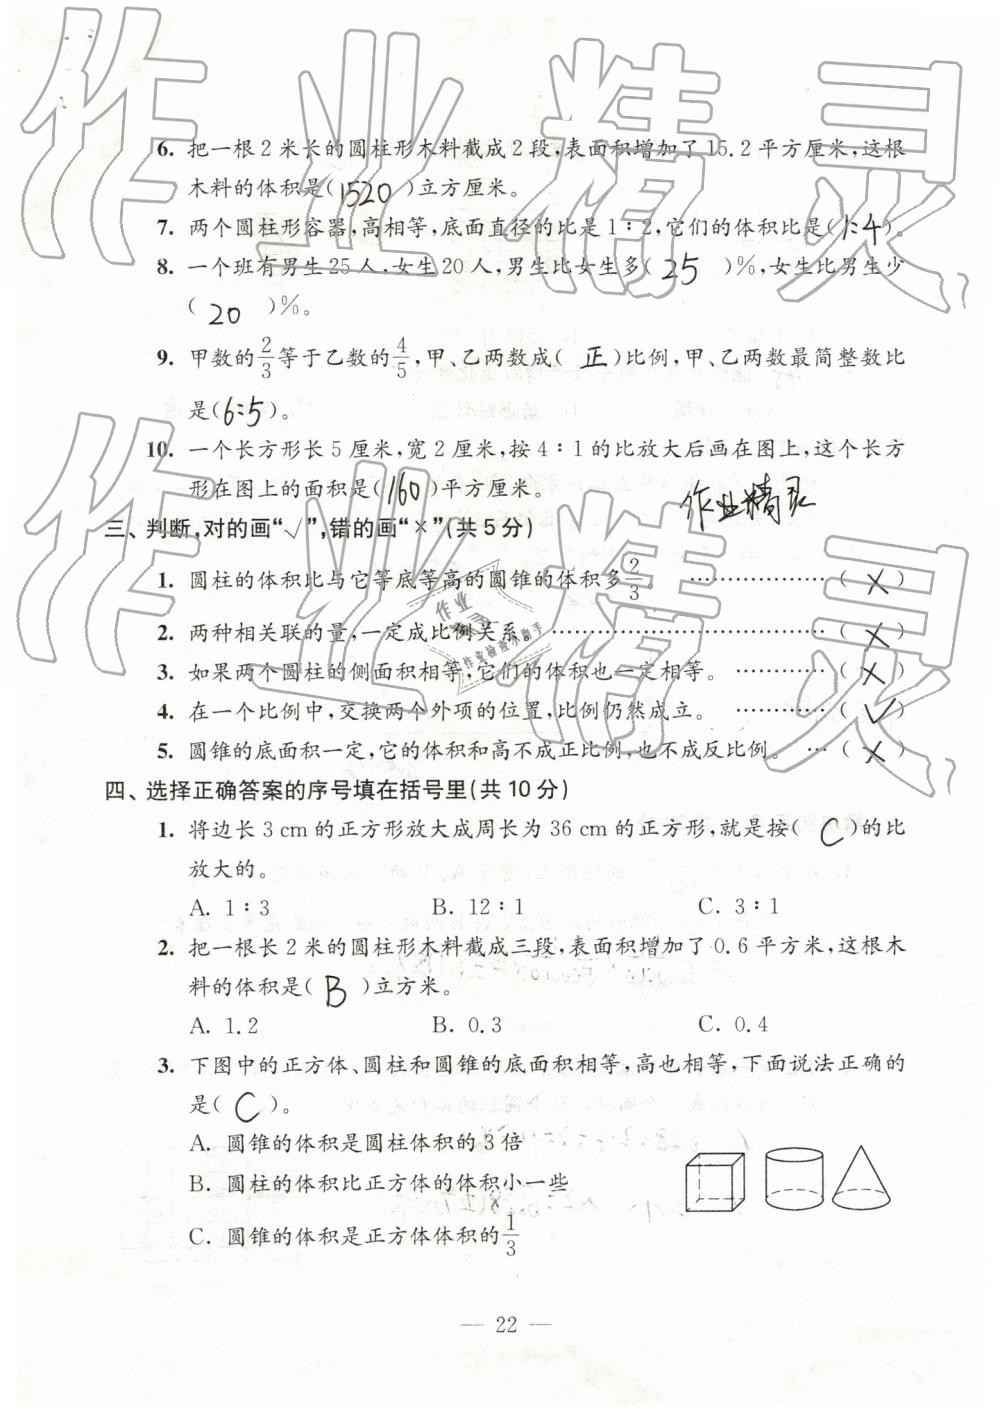 作业精灵
6. 把一根2米长的圆柱形木料截成2段,表面积增加了15.2平方厘米,这根
木料的体积是(1520)立方厘米。
7. 两个圆柱形容器,高相等,底面直径的比是1∶2,它们的体积比是(1:4)。
8. 一个班有男生25人,女生20人,男生比女生多( 25 )%,女生比男生少
( 20 )%。
9. 甲数的2/3等于乙数的4/5,甲、乙两数成( 正 )比例,甲、乙两数最简整数比
是(6:5)。
10. 一个长方形长5厘米,宽2厘米,按4∶1的比放大后画在图上,这个长方
形在图上的面积是(160)平方厘米。
作业精灵
三、判断,对的画“√”,错的画“×”(共5分)
1. 圆柱的体积比与它等底等高的圆锥的体积多2/3。 ………………( × )
2. 两种相关联的量,一定成比例关系。 ………………………………( × )
3. 如果两个圆柱的侧面积相等,它们的体积也一定相等。 …………( × )
4. 在一个比例中,交换两个外项的位置,比例仍然成立。 …………( √ )
5. 圆锥的底面积一定,它的体积和高不成正比例,也不成反比例。 …( × )
作业
作业检查小助手
作业精灵
四、选择正确答案的序号填在括号里(共10分)
1. 将边长3 cm的正方形放大成周长为36 cm的正方形,就是按( C )的比
放大的。
A. 1∶3 B. 12∶1 C. 3∶1
2. 把一根长2米的圆柱形木料截成三段,表面积增加了0.6平方米,这根木
料的体积是( B )立方米。
A. 1.2 B. 0.3 C. 0.4
3. 下图中的正方体、圆柱和圆锥的底面积相等,高也相等,下面说法正确的
是( C )。
A. 圆锥的体积是圆柱体积的3倍
B. 圆柱的体积比正方体的体积小一些
C. 圆锥的体积是正方体体积的1/3
— 22 —